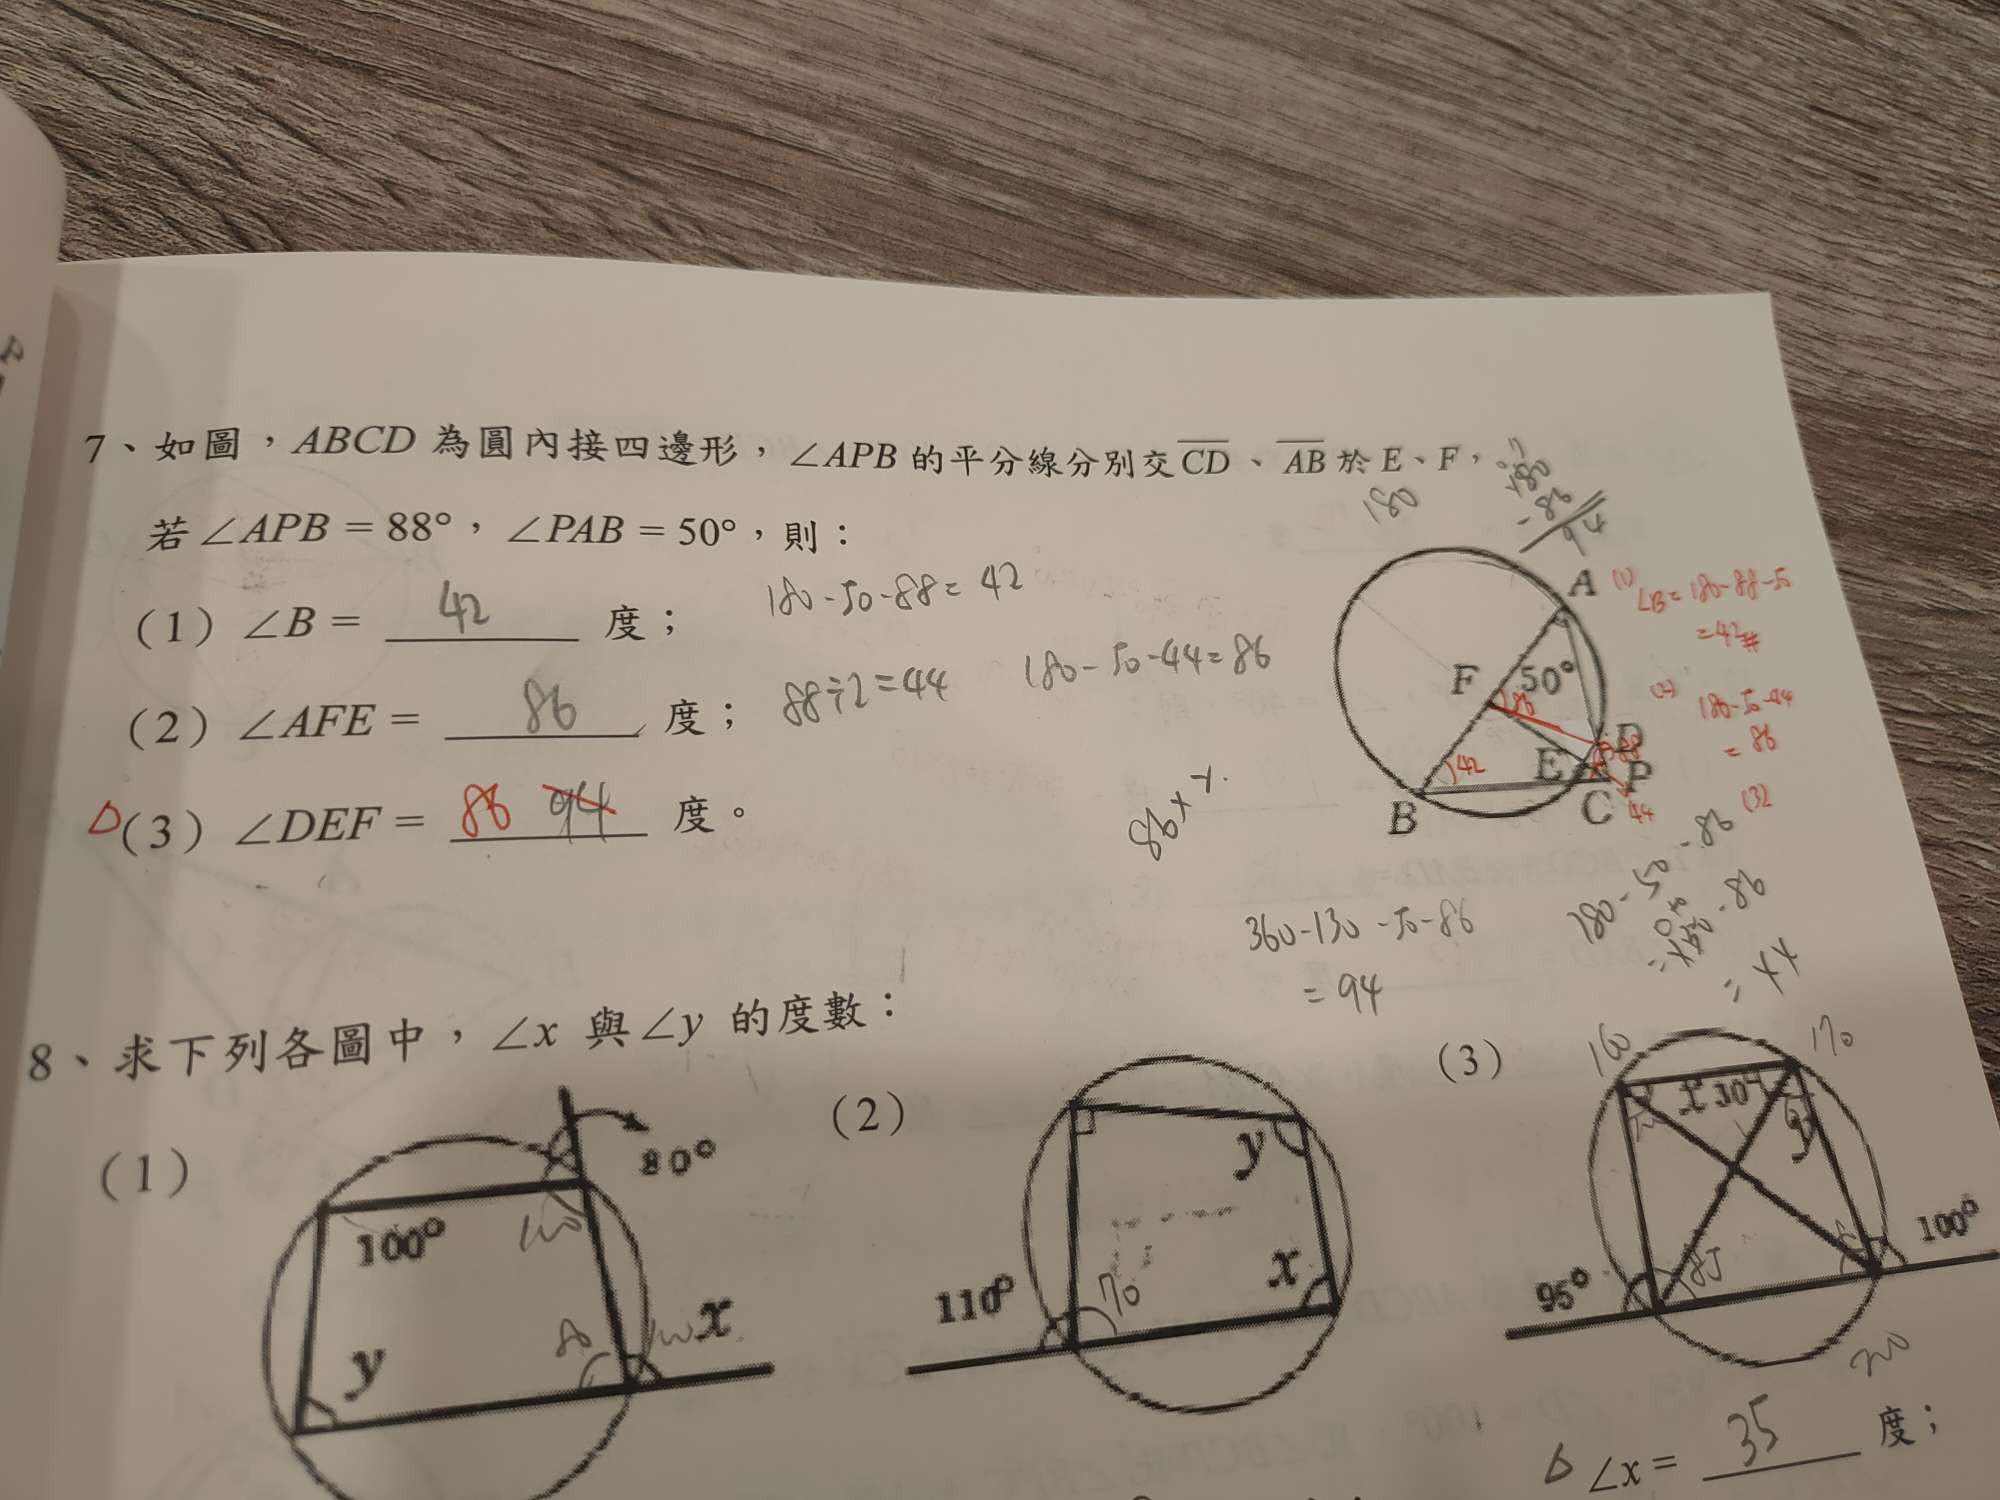 7、如圖，ABCD 為圓內接四邊形，∠APB 的平分線分別交 CD、AB 於 E、F，
若 ∠APB = 88°，∠PAB = 50°，則：
(1) ∠B = 42 度； 180-50-88=42
(2) ∠AFE = 86 度； 88÷2=44 180-50-44=86
△(3) ∠DEF = 86 94 度。
180
180
-86
94
A
F 50°
86
D
88
E
P
42
B
C
44
(1) ∠B=180-88-50
=42#
(2) 180-50-44
=86
(3)
86
360-130-50-86
=94
180-50-86
8、求下列各圖中，∠x 與∠y 的度數：
(1)
80°
100°
100
y
80
100
x
(2)
y
x
110°
70
(3)
160
170
x 30°
y
95°
85
100°
200
△ ∠x = 35 度；